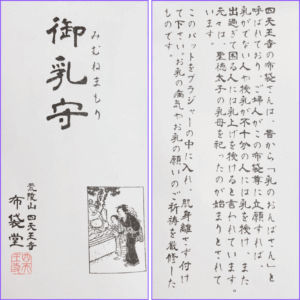 御乳守
みむねまもり
荒陵山 四天王寺
布袋堂
四天王寺
四天王寺の布袋さんは、昔から「乳のおんばさん」と
呼ばれており、ご婦人がこの布袋尊に立願すれば、
乳がでない人や授乳が不十分の人には乳を授け、また
出過ぎて困る人には乳上げを授けると言われています。
元々は、聖徳太子の乳母を祀ったのが始まりとされて
います。
このパットをブラジャーの中に入れ、肌身離さず付け
て下さい。お乳の病気やお乳の願いのご祈祷を厳修した
ものです。